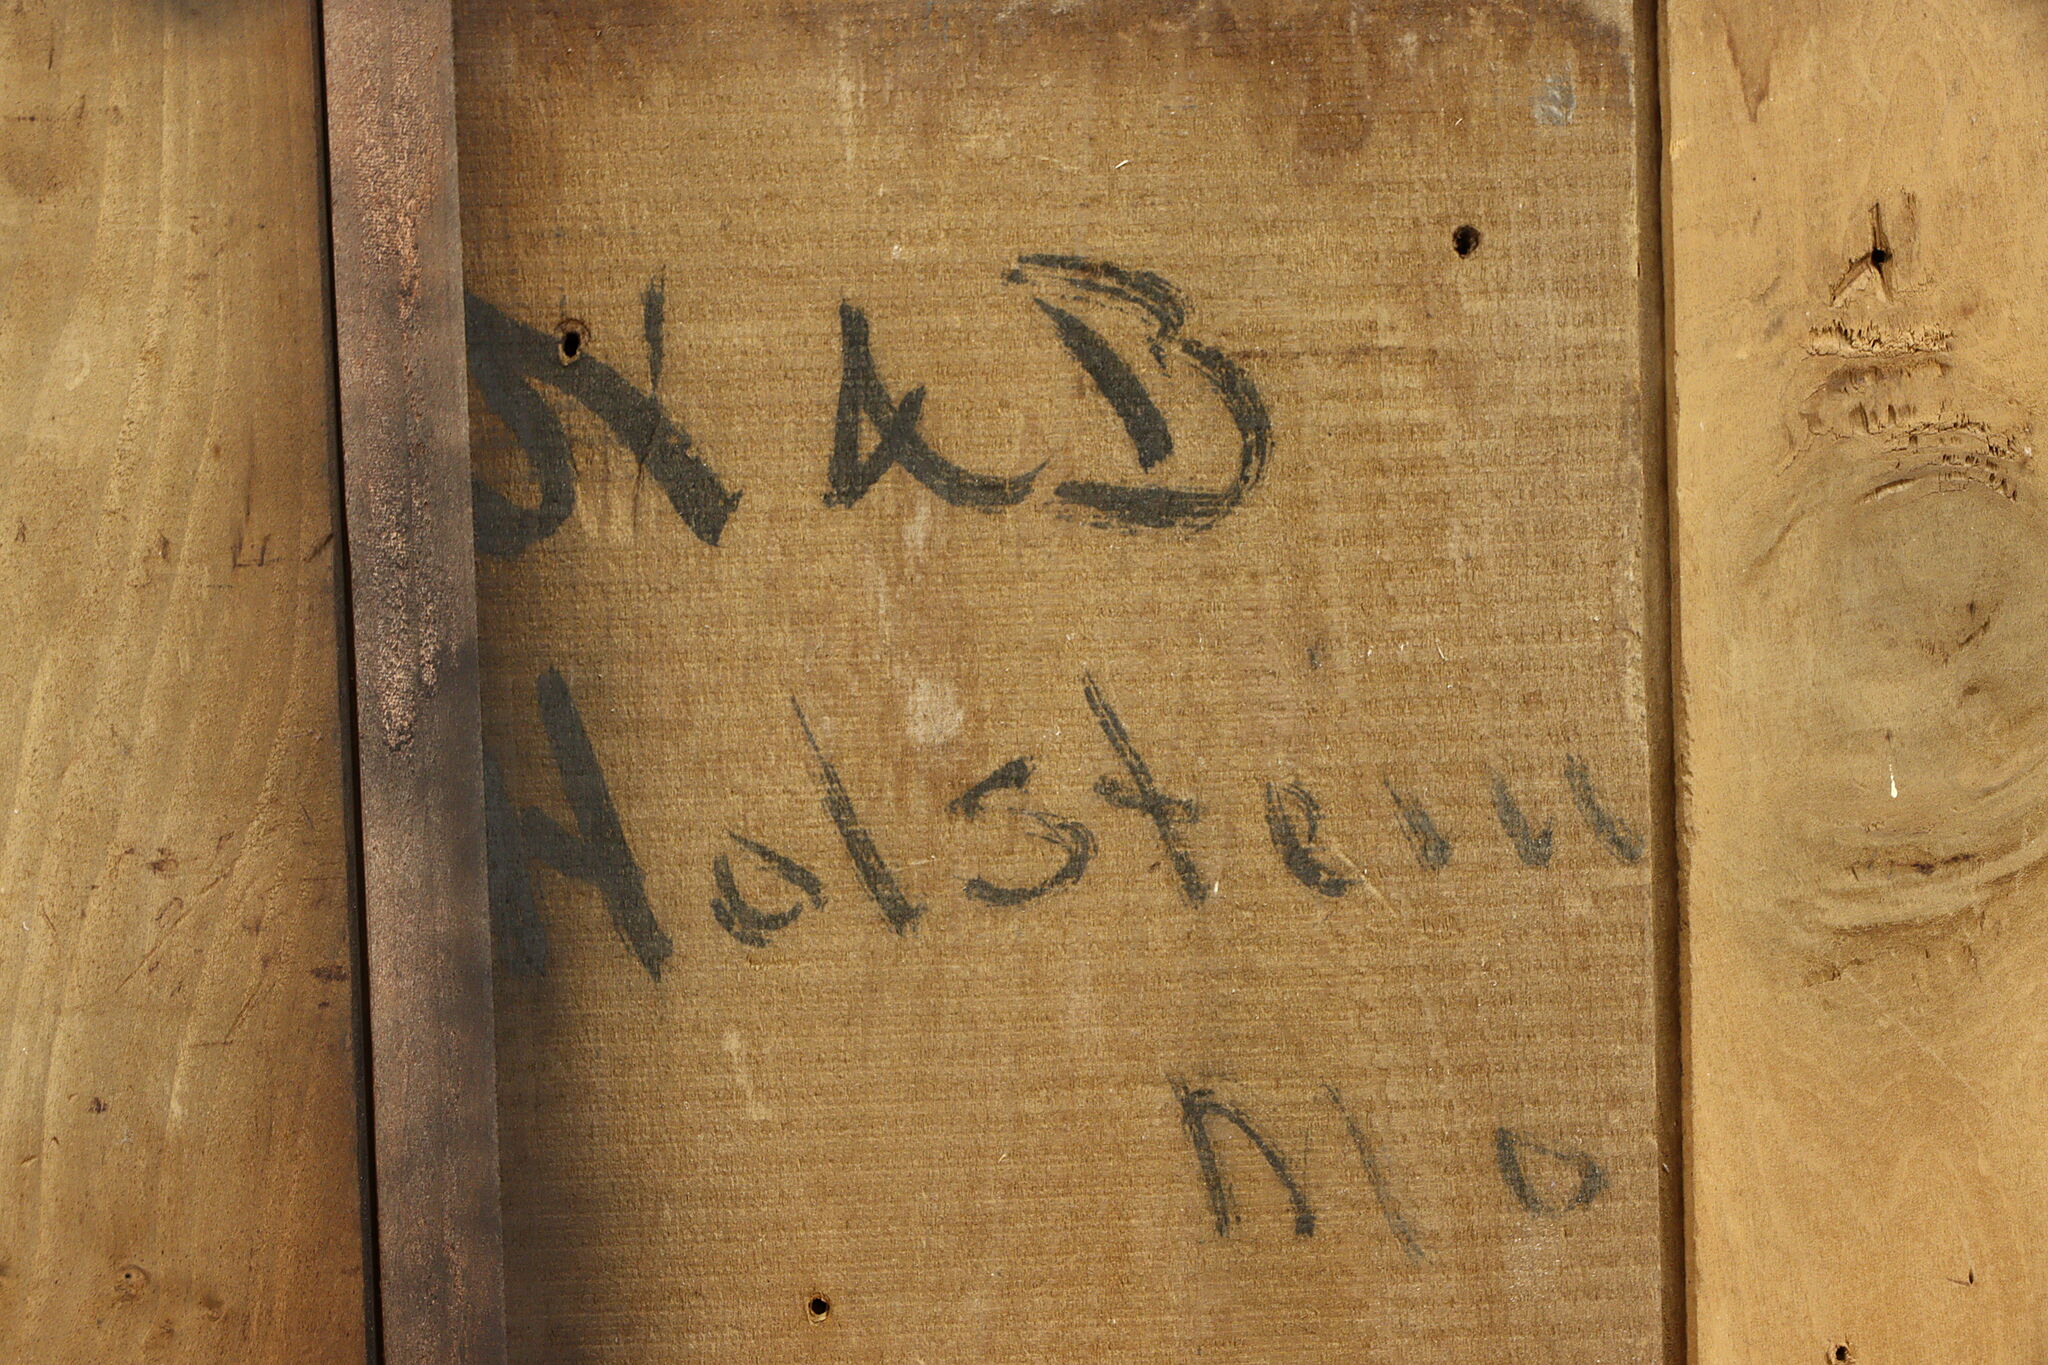 N & B
Holstein
Mo